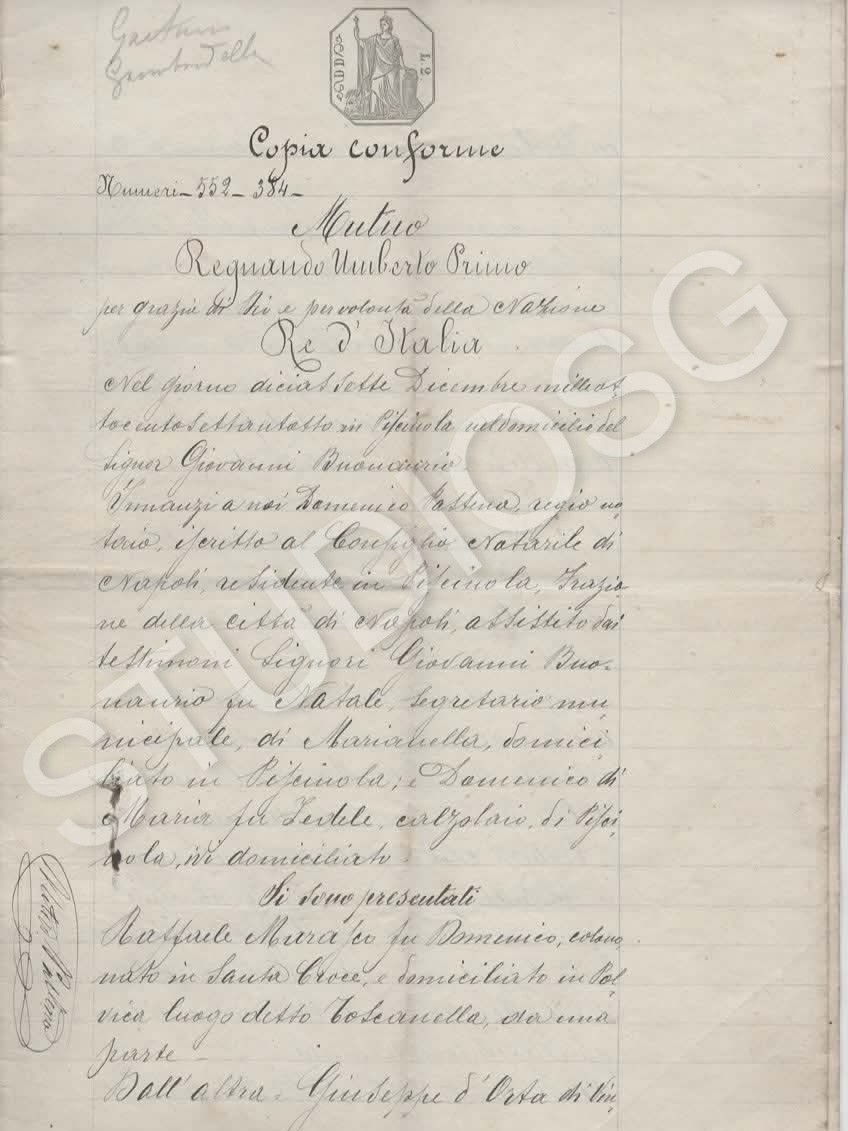 Gaetano
L. 2
Copia conforme
Numeri - 552 - 384 -
Mutuo
Regnando Umberto Primo
per grazia di Dio e per volontà della Nazione
Re d' Italia
Nel giorno diciassette Dicembre milleot-
tocentosettantotto in Piscinola nel domicilio del
Signor Giovanni Buonaurio.
Innanzi a noi Domenico Pastena, regio no-
taio, iscritto al Consiglio Notarile di
Napoli, residente in Piscinola, frazio-
ne della città di Napoli, assistito dai
testimoni Signori Giovanni Buo-
naurio fu Natale, segretario mu-
nicipale, di Marianella, domici-
liato in Piscinola; e Domenico di
Maria fu Fedele, calzolaio, di Pisci-
nola, ivi domiciliato
Si sono presentati
Raffaele Marasco fu Domenico, colono,
nato in Santa Croce, e domiciliato in Pol-
vica luogo detto Toscanella, da una
parte -
Dall' altra - Giuseppe d' Orta di Vin-
Pastena
STUDIOSG